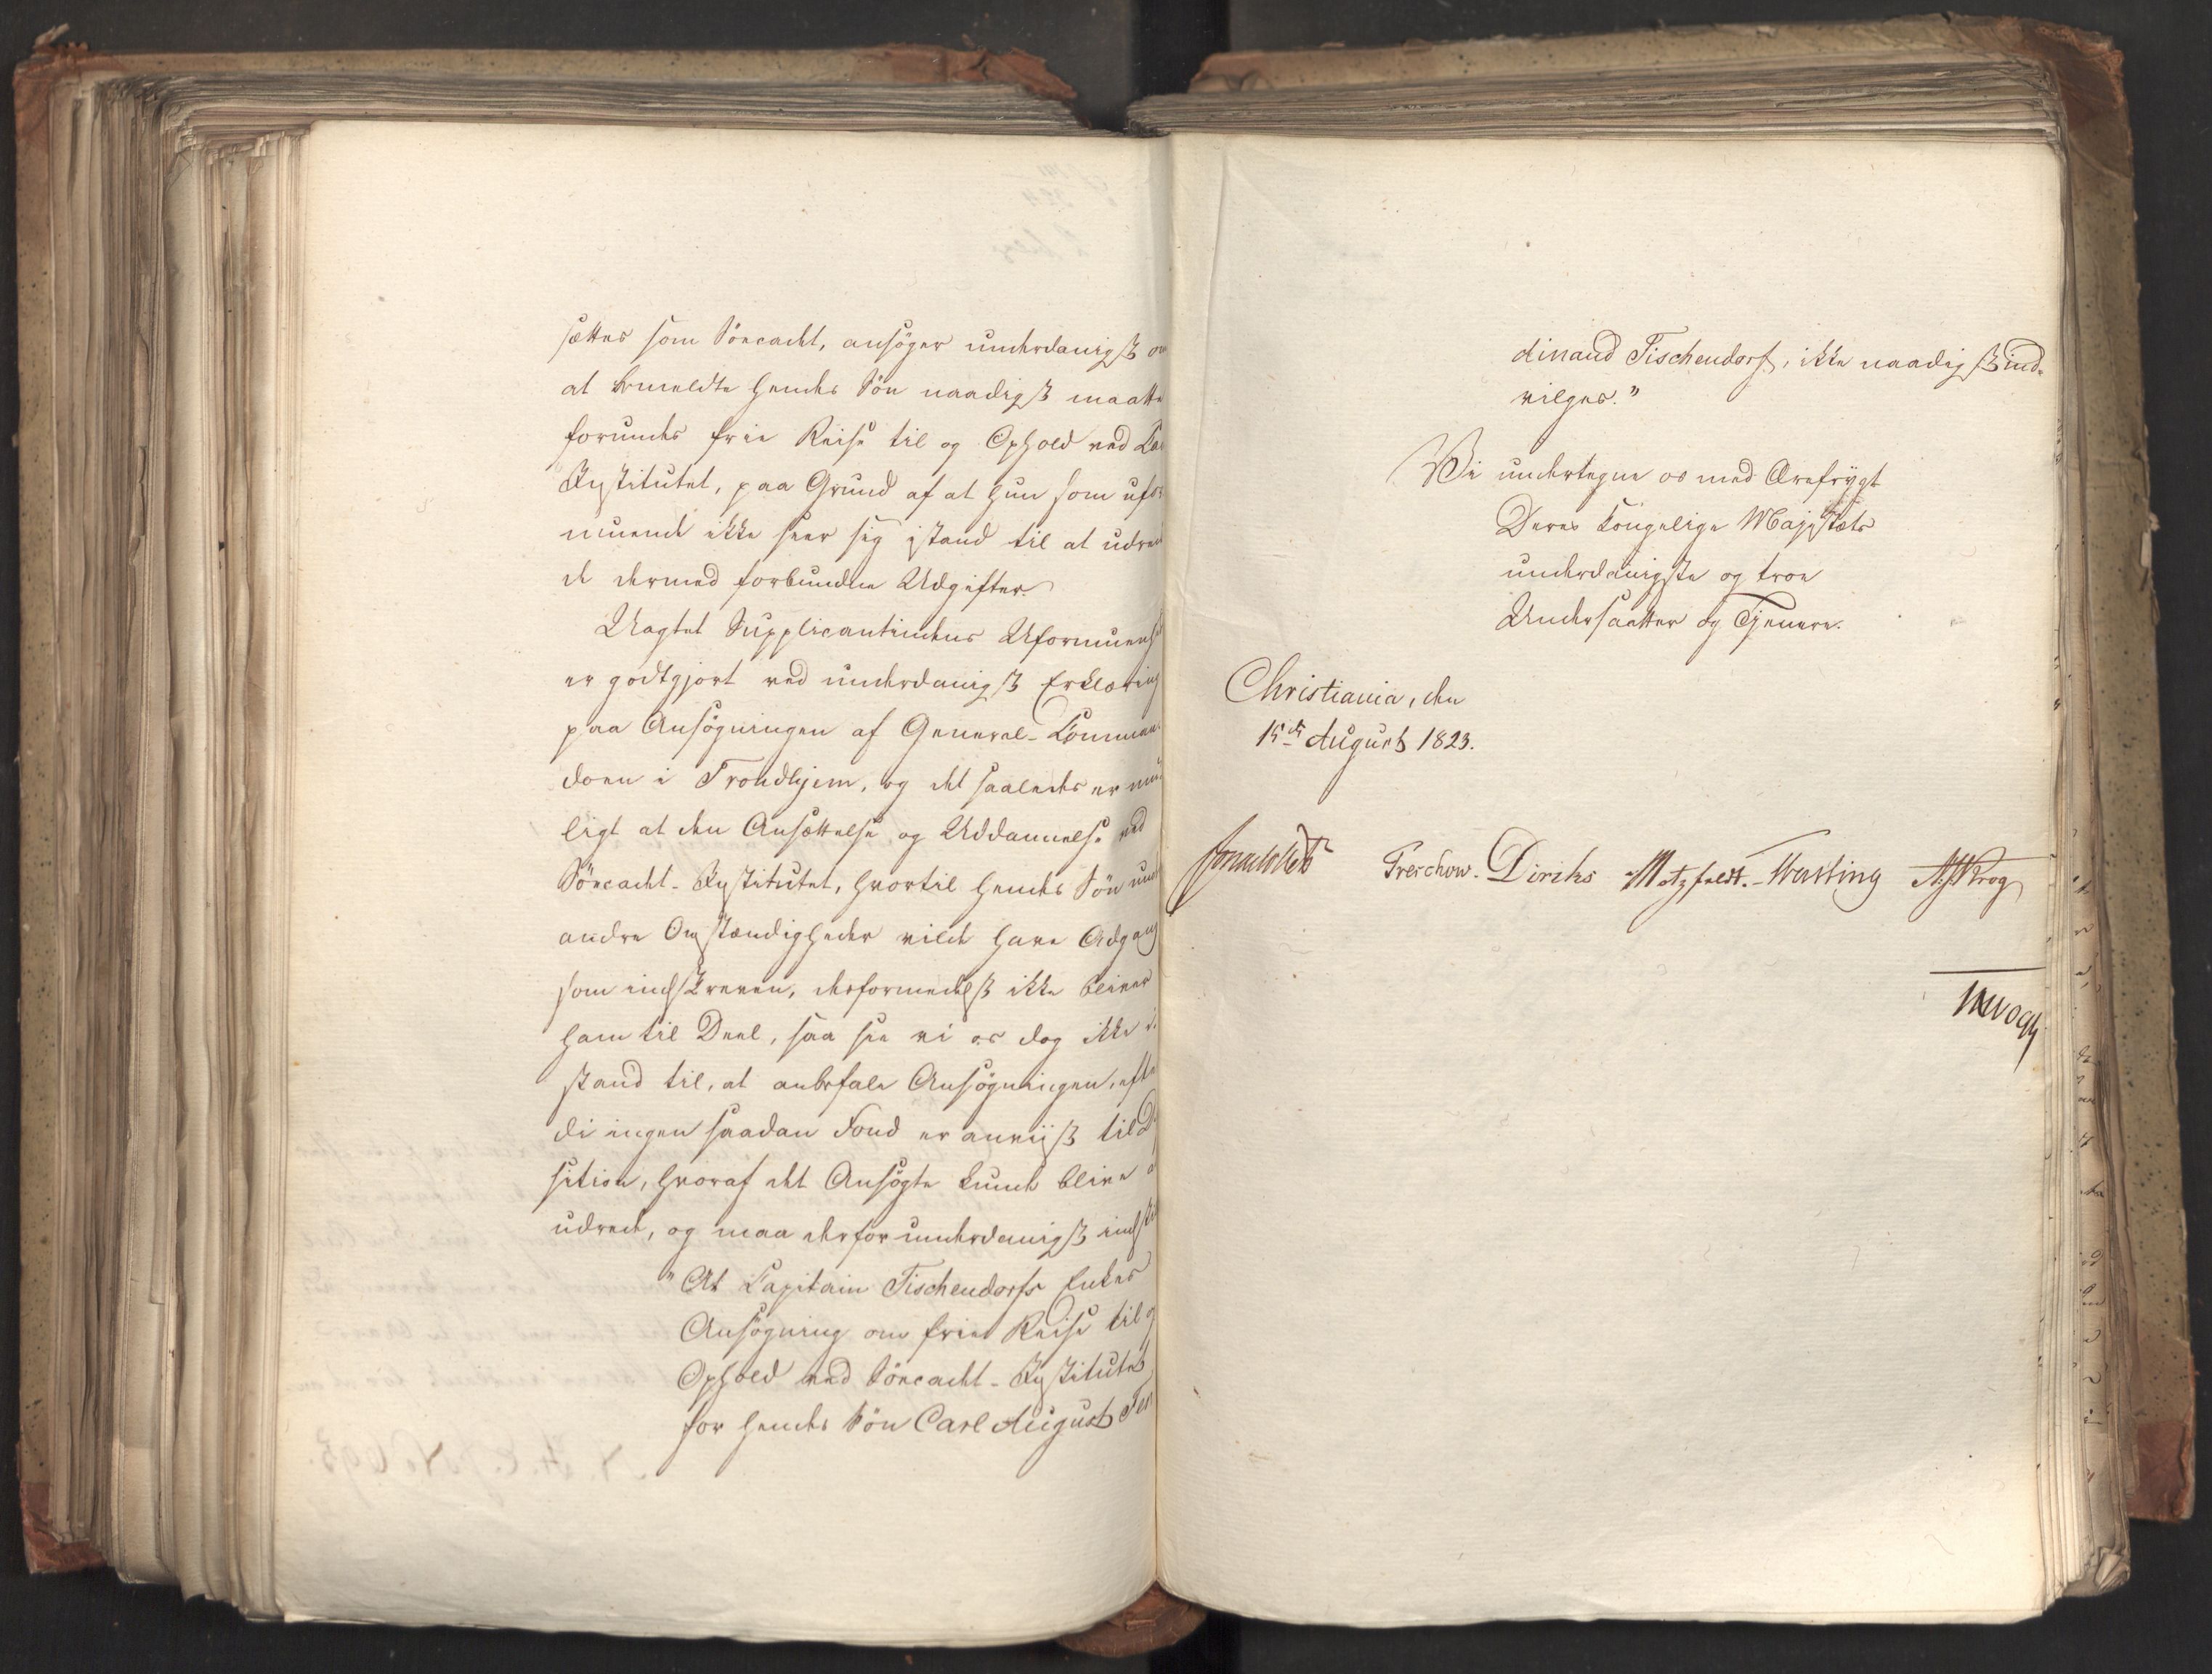 sættes som Söecadet, ansöger underdanigst om
at bemeldte hendes Sön naadigst maatte
forundes frie Reise til og Ophold ved
Institutet, paa Grund af at hun som ufor
muende ikke seer sig istand til at udrede
de dermed forbundne Udgifter.
Uagtet Supplicantindens Uformuenhed
er godtgjort ved underdanigst Erklæring
paa Ansögningen af General-Comman-
doen i Trondhjem, og det saaledes er mu
ligt at den Ansættelse og Uddannelse ved
Söecadet-Institutet, hvortil hendes Sön under
andre Omstændigheder vilde have Adgang
som indskreven, desformedelst ikke bliver
ham til Deel, saa see vi os dog ikke i
stand til, at anbefale Ansögningen, efter
di ingen saadan Fond er anviist til
sition, hvoraf det Ansögte kunde blive at
udrede, og maa derfor underdanigst indstille
"At Capitain Tischendorfs Enkes
Ansögning om frie Reise til og
Ophold ved Söecadet-Institutet
for hendes Sön Carl August Fer
dinand Tischendorf, ikke naadigst ind-
vilges."
Vi undertegne os med Ærefrygt
Deres Kongelige Majestæts
underdanigste og troe
Undersaatter og Tjenere.
Christiania, den
15de August 1823.
Treschow. Diriks Motzfeldt. Krog